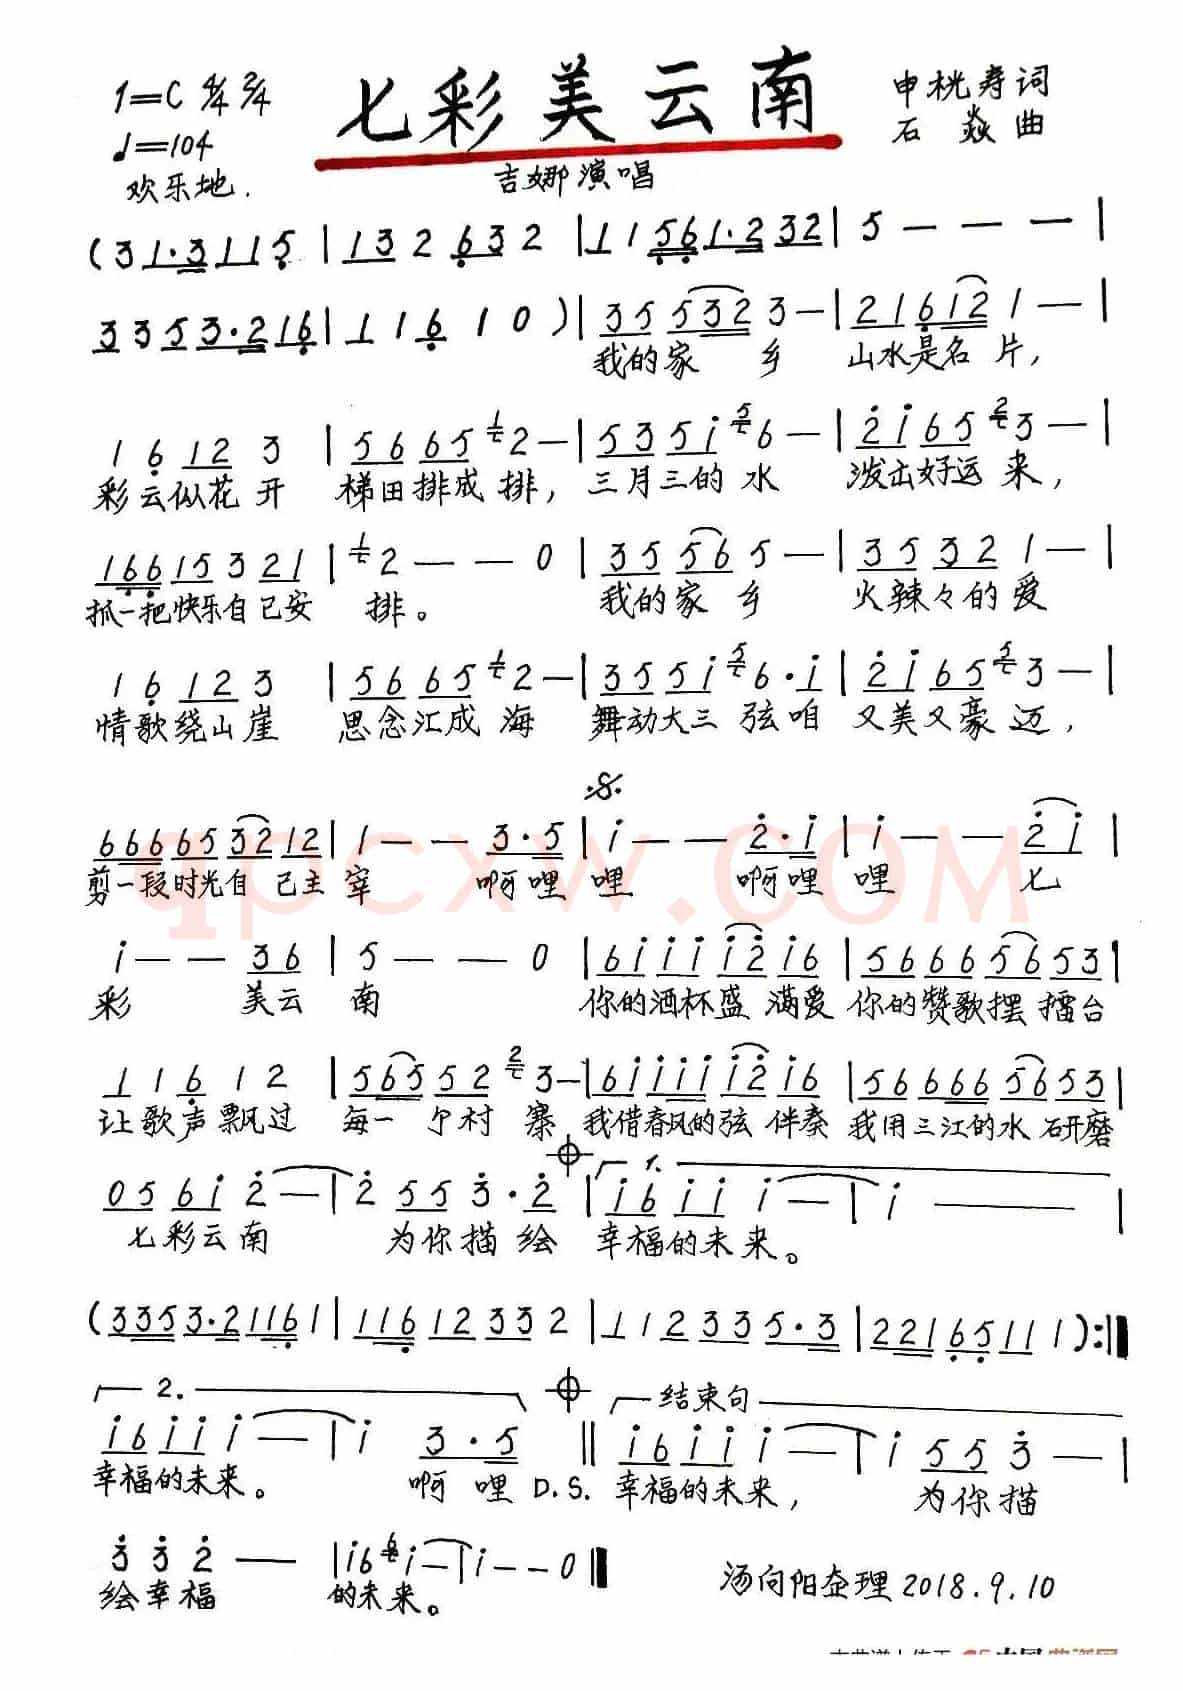 七彩美云南
1=C 4/4 2/4
♩=104
欢乐地.
申桄寿词
石焱曲
吉娜演唱
(3 1·3 1 1 5 | 1 3 2 6 3 2 | 1 1 5 6 1·2 3 2 | 5 — — — |
3 3 5 3·2 1 6 | 1 1 6 1 0 ) | 3 5 5 3 2 3 — | 2 1 6 1 2 1 — |
我的家 乡 山水是名 片,
1 6 1 2 3 | 5 6 6 5 1 2 — | 5 3 5 i 5 6 — | 2 i 6 5 2 3 — |
彩云似花开 梯田排成排, 三月三的水 泼出好运来,
1 6 6 1 5 3 2 1 | 1 2 — — 0 | 3 5 5 6 5 — | 3 5 3 2 1 — |
抓一把快乐自己安 排。 我的家 乡 火辣々的爱
1 6 1 2 3 | 5 6 6 5 1 2 — | 3 5 5 i 5 6·i | 2 i 6 5 5 3 — |
情歌绕山崖 思念汇成海 舞动大三弦咱 又美又豪迈,
6 6 6 6 5 3 2 1 2 | 1 — — 3·5 | i — — 2·i | i — — 2 i |
剪一段时光自己主 宰 啊哩 哩 啊哩 哩 七
i — — 3 6 | 5 — — 0 | 6 i i i i 2 i 6 | 5 6 6 6 5 6 5 3 |
彩 美云 南 你的酒杯盛 满爱 你的赞歌摆 擂台
1 1 6 1 2 | 5 6 5 5 2 2 3 — | 6 i i i i i 2 i 6 | 5 6 6 6 6 5 6 5 3 |
让歌声飘过 每一个村 寨 我借春风的弦 伴奏 我用三江的水 研磨
1.
0 5 6 i 2 — | 2 5 5 3·2 | i 6 i i i — | i — — — |
七彩云南 为你描绘 幸福的未来。
(3 3 5 3·2 1 1 6 1 | 1 1 6 1 2 3 3 2 | 1 1 2 3 3 5·3 | 2 2 1 6 5 1 1 1 ) :‖
2. 结束句
i 6 i i i — | i 3·5 ‖ i 6 i i i — | i 5 5 3 — |
幸福的未来。 啊 哩 D.S. 幸福的未来, 为你描
3 3 2 — | i 6 6 i — | i — — 0 ‖
绘幸福 的未来。
汤向阳企理 2018.9.10
qpcxw.com